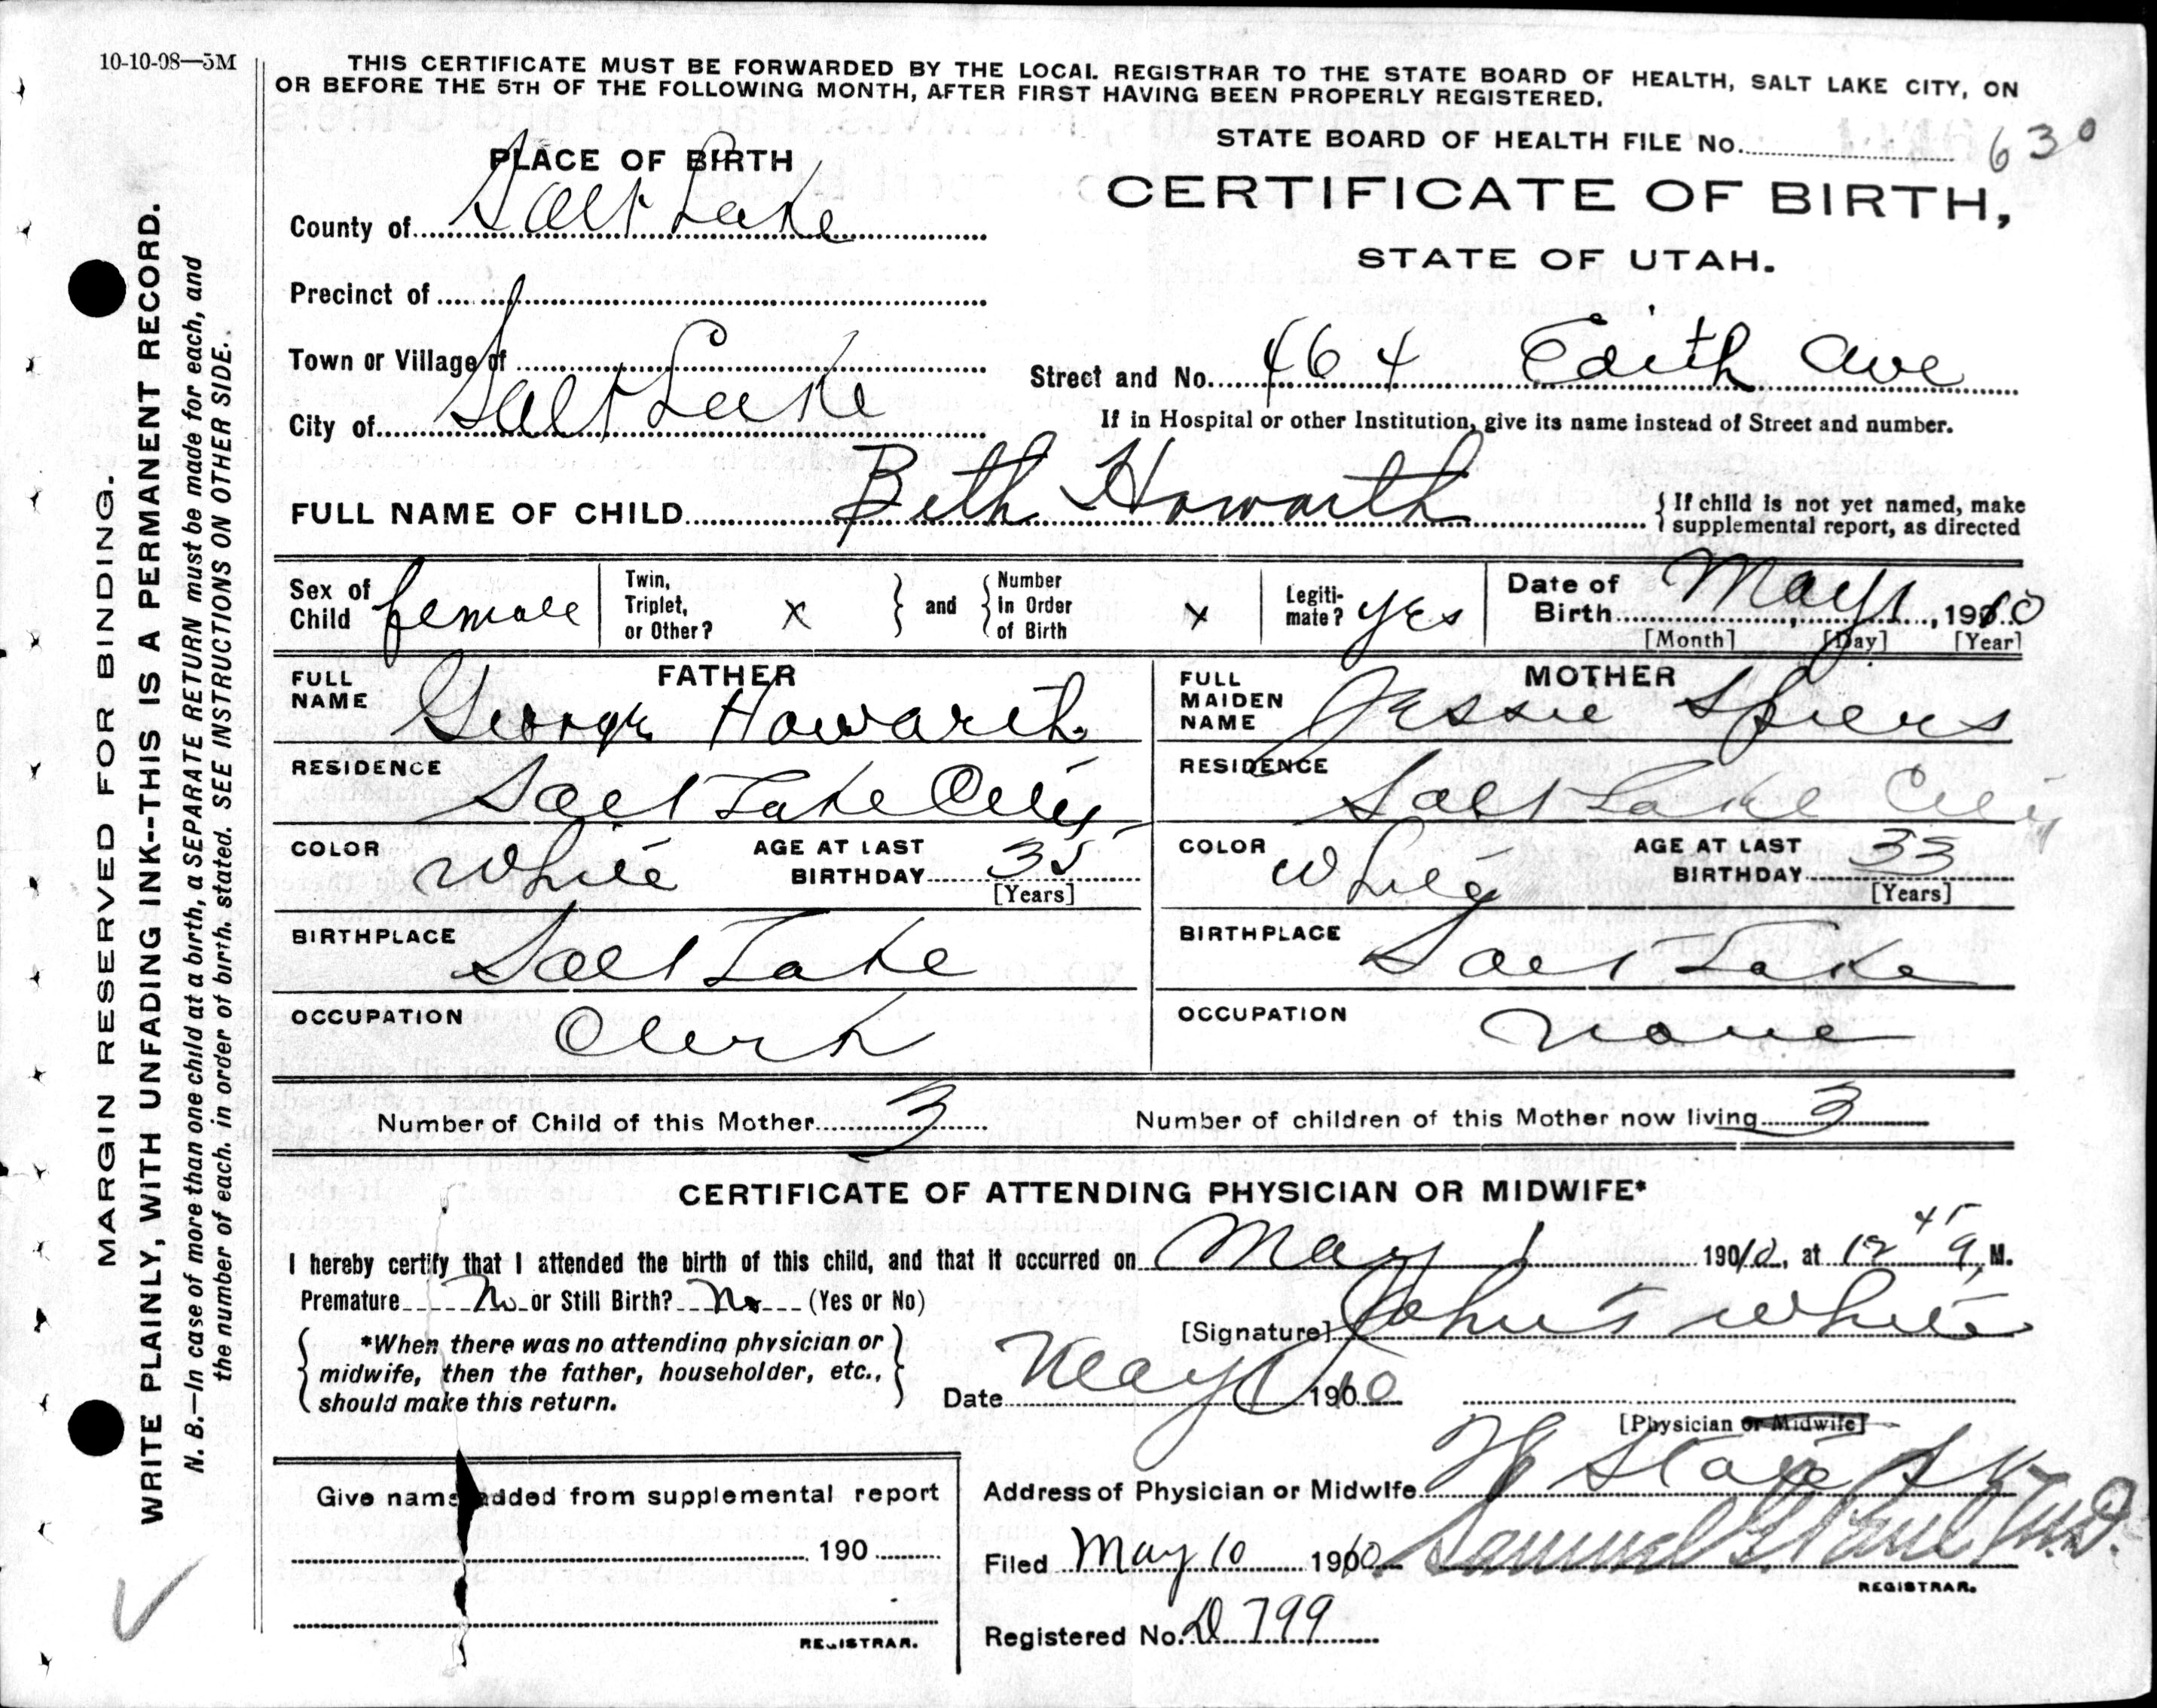 10-10-08—5M
THIS CERTIFICATE MUST BE FORWARDED BY THE LOCAL REGISTRAR TO THE STATE BOARD OF HEALTH, SALT LAKE CITY, ON
OR BEFORE THE 5TH OF THE FOLLOWING MONTH, AFTER FIRST HAVING BEEN PROPERLY REGISTERED.
STATE BOARD OF HEALTH FILE No. 630
PLACE OF BIRTH
CERTIFICATE OF BIRTH,
STATE OF UTAH.
County of Salt Lake
Precinct of
Town or Village of
City of Salt Lake
Street and No. 464 Edith Ave
If in Hospital or other Institution, give its name instead of Street and number.
FULL NAME OF CHILD Beth Howarth
{ If child is not yet named, make
supplemental report, as directed
Sex of Child female
Twin, Triplet, or Other? x } and { Number In Order of Birth x
Legitimate? yes
Date of Birth May 1, 1910
[Month] [Day] [Year]
FATHER
FULL NAME George Howarth
RESIDENCE Salt Lake City
COLOR White AGE AT LAST BIRTHDAY 35
[Years]
BIRTHPLACE Salt Lake
OCCUPATION Clerk
MOTHER
FULL MAIDEN NAME Jessie Spiers
RESIDENCE Salt Lake City
COLOR White AGE AT LAST BIRTHDAY 33
[Years]
BIRTHPLACE Salt Lake
OCCUPATION None
Number of Child of this Mother 3 Number of children of this Mother now living 3
CERTIFICATE OF ATTENDING PHYSICIAN OR MIDWIFE*
I hereby certify that I attended the birth of this child, and that it occurred on May 1 1910, at 12 45 a, M.
Premature No or Still Birth? No (Yes or No)
{ *When there was no attending physician or
midwife, then the father, householder, etc.,
should make this return. }
[Signature] John T White
Date May 1910
[Physician or Midwife]
Give name added from supplemental report
190
REGISTRAR.
Address of Physician or Midwife State St
Filed May 10 1910 Samuel G. Paul M.D.
REGISTRAR.
Registered No. D 799
MARGIN RESERVED FOR BINDING.
WRITE PLAINLY, WITH UNFADING INK--THIS IS A PERMANENT RECORD.
N. B.—In case of more than one child at a birth, a SEPARATE RETURN must be made for each, and
the number of each. in order of birth. stated. SEE INSTRUCTIONS ON OTHER SIDE.